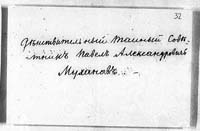 32
Дѣйствительный Тайный Совѣ
тникъ Павелъ Александровичъ
Мухановъ.